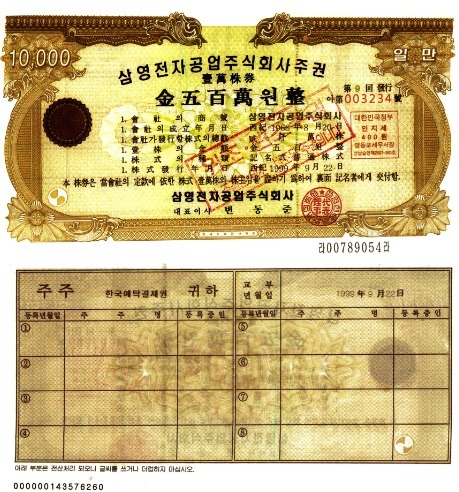 10,000
일만
삼영전자공업주식회사주권
壹萬株券
金五百萬원整
第9回發行
아第003234號
1. 會社의 商號 삼영전자공업주식회사
1. 會社의 成立年月日 西紀1968年 8月20日
1. 會社가 發行할 株式의 總數
1. 壹株의 金額
1. 株式의 種類 記名式 普通株式
1. 株式發行年月日 西紀1999年 9月22日
대한민국정부
인지세
400원
영등포세무서장
本 株券은 當會社의 定款에 依한 株式 壹萬株의 株主임을 證하기 爲하여 裏面 記名者에게 交付함.
삼영전자공업주식회사
대표이사 변동준
라00789054라
주주 한국예탁결제원 귀하
교부
년월일
1999年 9月22日
등록년월일 주주명 등록증인 등록년월일 주주명 등록증인
① ⑤
② ⑥
③ ⑦
④ ⑧
아래 부분은 전산처리 되오니 글씨를 쓰거나 더럽히지 마십시오.
000000143576260